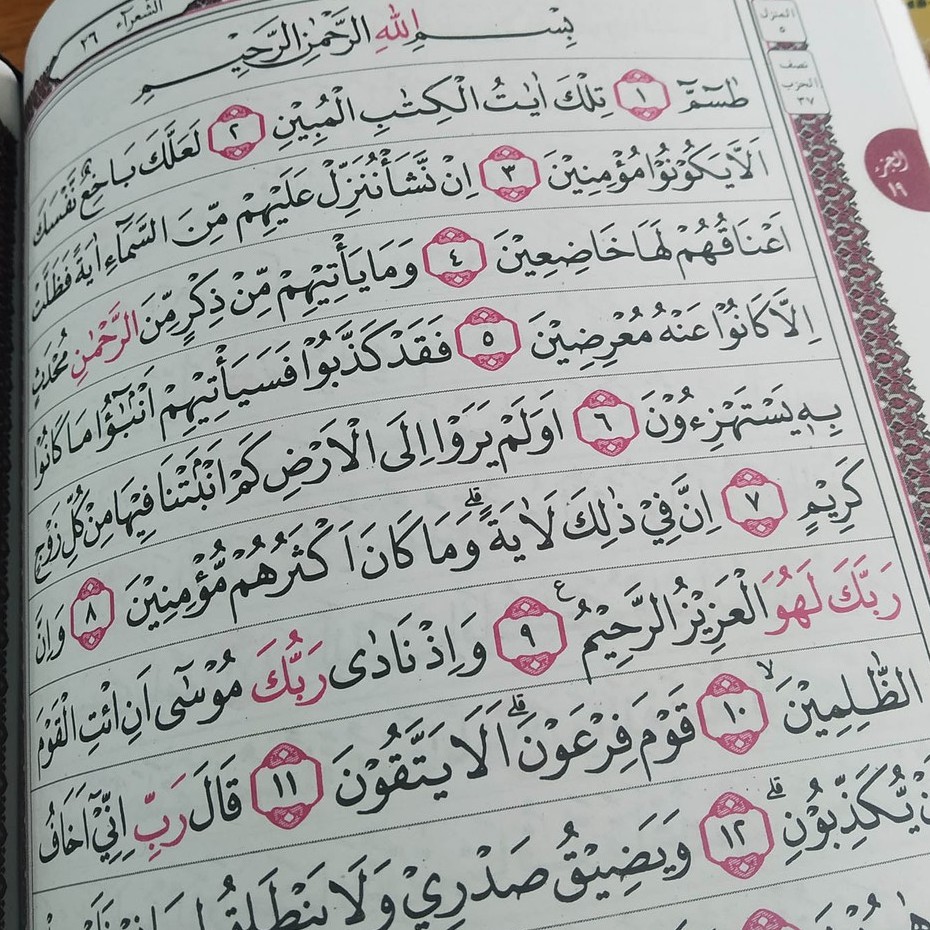 الشعرآء ٢٦
المنزل ٥
نصف الحزب ٣٧
الجزء ١٩
بِسْمِ اللهِ الرَّحْمٰنِ الرَّحِيْمِ
طٰسٓمّٓ ١ تِلْكَ اٰيٰتُ الْكِتٰبِ الْمُبِيْنِ ٢ لَعَلَّكَ بَاخِعٌ نَّفْسَكَ
اَلَّا يَكُوْنُوْا مُؤْمِنِيْنَ ٣ اِنْ نَّشَأْ نُنَزِّلْ عَلَيْهِمْ مِّنَ السَّمَآءِ اٰيَةً فَظَلَّتْ
اَعْنَاقُهُمْ لَهَا خَاضِعِيْنَ ٤ وَمَا يَأْتِيْهِمْ مِّنْ ذِكْرٍ مِّنَ الرَّحْمٰنِ مُحْدَثٍ
اِلَّا كَانُوْا عَنْهُ مُعْرِضِيْنَ ٥ فَقَدْ كَذَّبُوْا فَسَيَأْتِيْهِمْ اَنْۢبٰٓؤُا مَا كَانُوْا
بِهٖ يَسْتَهْزِءُوْنَ ٦ اَوَلَمْ يَرَوْا اِلَى الْاَرْضِ كَمْ اَنْۢبَتْنَا فِيْهَا مِنْ كُلِّ زَوْجٍ
كَرِيْمٍ ٧ اِنَّ فِيْ ذٰلِكَ لَاٰيَةًۗ وَمَا كَانَ اَكْثَرُهُمْ مُّؤْمِنِيْنَ ٨ وَاِنَّ
رَبَّكَ لَهُوَ الْعَزِيْزُ الرَّحِيْمُ ع ٩ وَاِذْ نَادٰى رَبُّكَ مُوْسٰٓى اَنِ ائْتِ الْقَوْمَ
الظّٰلِمِيْنَۙ ١٠ قَوْمَ فِرْعَوْنَۗ اَلَا يَتَّقُوْنَ ١١ قَالَ رَبِّ اِنِّيْٓ اَخَافُ
يُّكَذِّبُوْنِۗ ١٢ وَيَضِيْقُ صَدْرِيْ وَلَا يَنْطَلِقُ